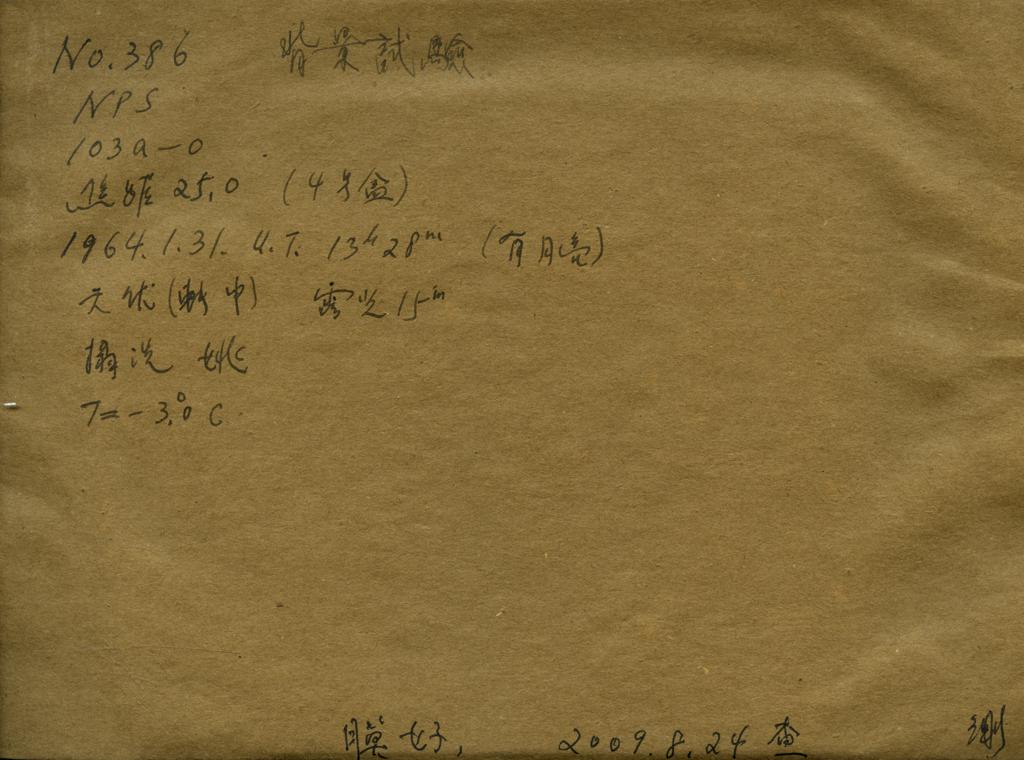 No.386 背景試驗
NPS
103a-0
焦距 25.0 (4号盒)
1964.1.31. U.T. 13h28m (有月亮)
天伏(軟中) 露光 15m
攝 洗 姚
T=-3.°0 C
膜好, 2009.8.24 查
测